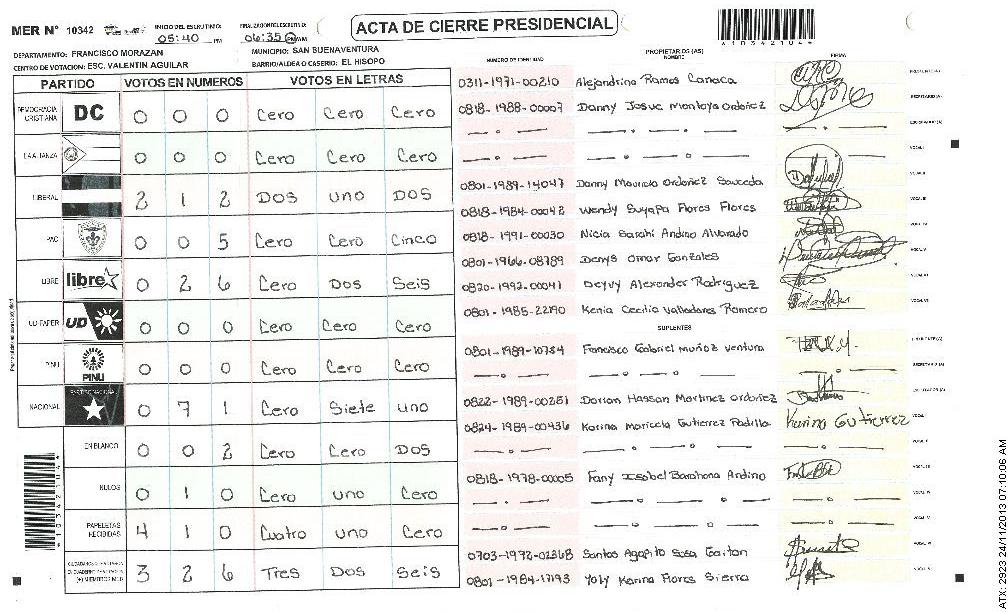 MER N° 10342
INICIO DEL ESCRUTINIO: 05:40 PM
FINALIZACION ESCRUTINIO: 06:35 PM
ACTA DE CIERRE PRESIDENCIAL
4103421044
DEPARTAMENTO: FRANCISCO MORAZAN
MUNICIPIO: SAN BUENAVENTURA
CENTRO DE VOTACION: ESC. VALENTIN AGUILAR
BARRIO/ALDEA O CASERIO: EL HISOPO
PARTIDO VOTOS EN NUMEROS VOTOS EN LETRAS
DEMOCRACIA CRISTIANA DC 0 0 0 Cero Cero Cero
LA ALIANZA 0 0 0 Cero Cero Cero
LIBERAL 2 1 2 DOS uno DOS
PAC 0 0 5 Cero Cero Cinco
LIBRE libre 0 2 6 Cero DOS Seis
UD-FAPER UD 0 0 0 Cero Cero Cero
PINU PINU 0 0 0 Cero Cero Cero
NACIONAL 0 7 1 Cero Siete uno
EN BLANCO 0 0 2 Cero Cero DOS
NULOS 0 1 0 Cero uno Cero
PAPELETAS RECIBIDAS 4 1 0 Cuatro uno Cero
(+) MIEMBROS MER 3 2 6 Tres DOS Seis
NUMERO DE IDENTIDAD PROPIETARIOS (AS) NOMBRE FIRMA
0311-1971-00210 Alejandrina Ramos Canaca PRESIDENTE (A)
0818-1988-00007 Danny Josue Montoya Ordoñez SECRETARIO (A)
ESCRUTADOR (A)
VOCAL I
0801-1989-14047 Danny Mauricio Ordoñez Sauceda VOCAL II
0818-1984-00042 Wendy Suyapa Flores Flores VOCAL III
0818-1991-00030 Nicia Sarahi Andino Alvarado VOCAL IV
0801-1966-08789 Denys Omar Gonzales VOCAL V
0820-1992-00041 Deyvy Alexander Rodriguez VOCAL VI
0801-1985-22190 Kenia Cecilia Valladares Romero VOCAL VII
SUPLENTES
0801-1989-10734 Francisco Gabriel Muñoz Ventura PRESIDENTE (A)
SECRETARIO (A)
0822-1989-00251 Dorian Hassan Martinez Ordoñez ESCRUTADOR (A)
0824-1989-00436 Karina Maricela Gutierrez Padilla Karina Gutierrez VOCAL I
VOCAL II
0818-1978-00005 Fany Isabel Barahona Andino VOCAL III
VOCAL IV
VOCAL V
0703-1972-02368 Santos Agapito Sosa Gaitan VOCAL VI
0801-1984-17193 Yoly Karina Flores Sierra
ATX: 2923 24/11/2013 07:10:06 AM